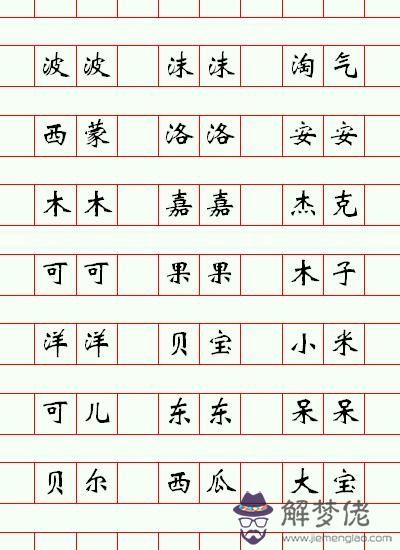 波波 沫沫 淘气
西蒙 洛洛 安安
木木 嘉嘉 杰克
可可 果果 木子
洋洋 贝宝 小米
可儿 东东 呆呆
贝尔 西瓜 大宝
解梦佬
www.jiemenglao.com